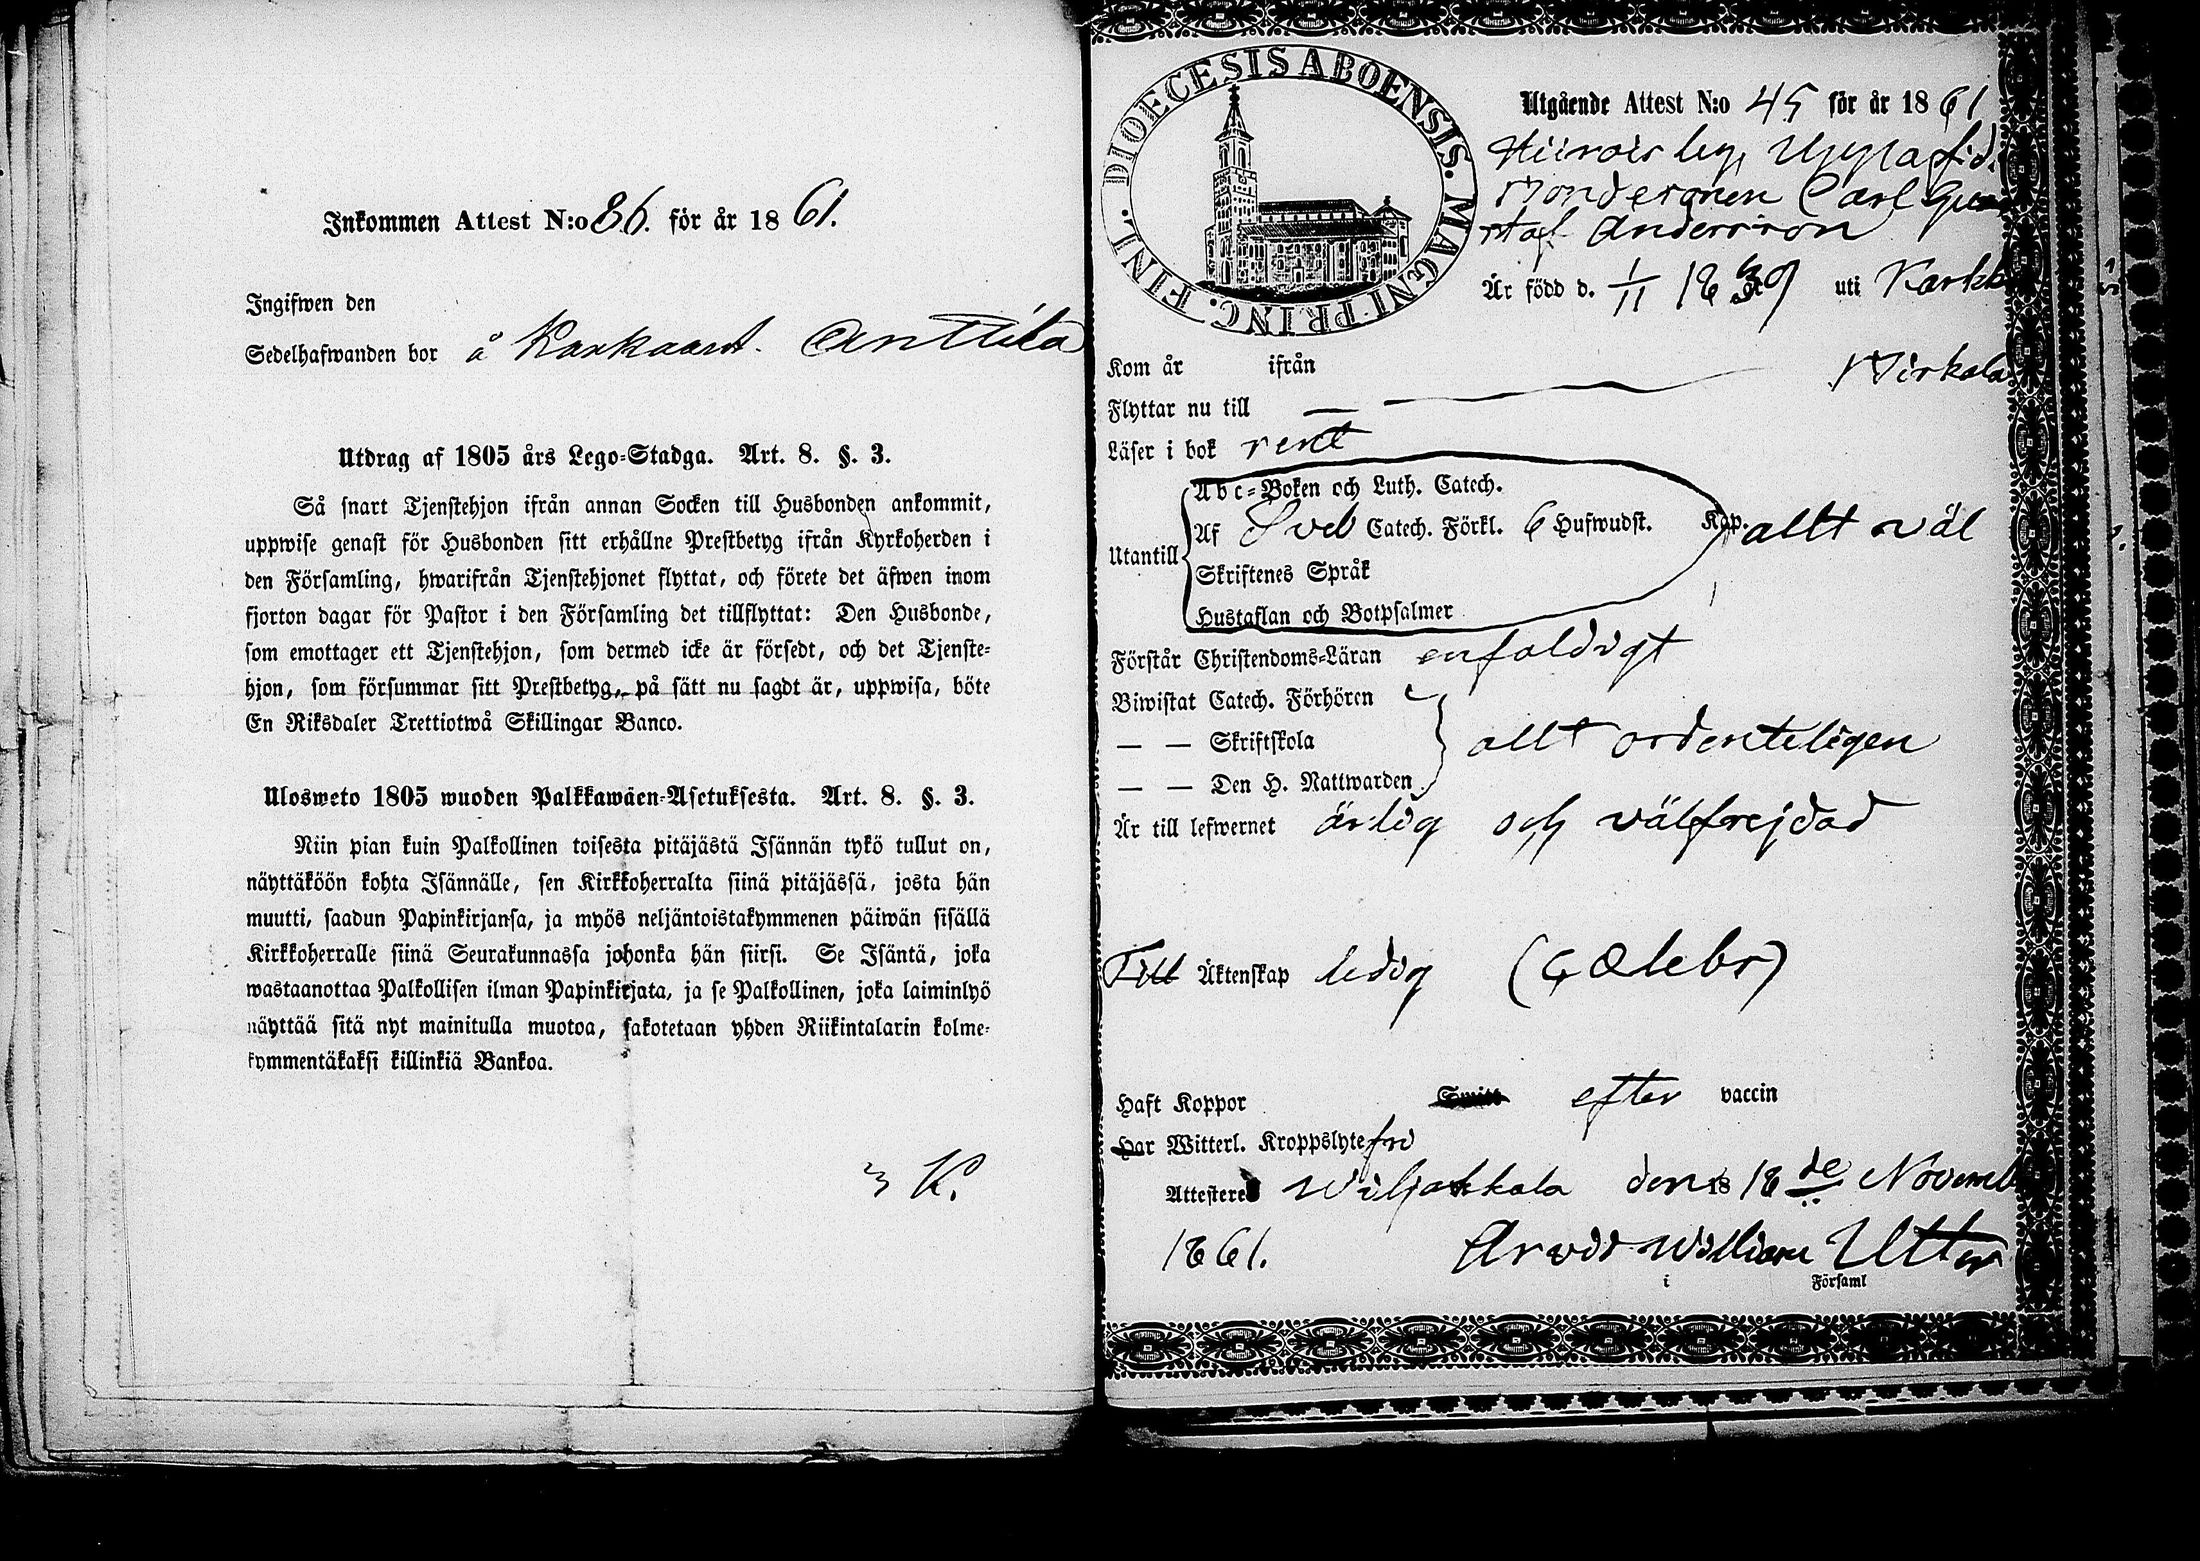 Inkommen Attest N:o 86. för år 1861.
Ingifwen den
Sedelhafwanden bor å Karkaart. Anttila
Utdrag af 1805 års Lego=Stadga. Art. 8. §. 3.
Så snart Tjenstehjon ifrån annan Socken till Husbonden ankommit,
uppwise genast för Husbonden sitt erhållne Prestbetyg ifrån Kyrkoherden i
den Församling, hwarifrån Tjenstehjonet flyttat, och förete det äfwen inom
fjorton dagar för Pastor i den Församling det tillflyttat: Den Husbonde,
som emottager ett Tjenstehjon, som dermed icke är försedt, och det Tjenste=
hjon, som försummar sitt Prestbetyg, på sätt nu sagdt är, uppwisa, böte
En Riksdaler Trettiotwå Skillingar Banco.
Ulosweto 1805 wuoden Palkkawäen=Asetuksesta. Art. 8. §. 3.
Niin pian kuin Palkollinen toisesta pitäjästä Isännän tykö tullut on,
näyttäköön kohta Isännälle, sen Kirkkoherralta siinä pitäjässä, josta hän
muutti, saadun Papinkirjansa, ja myös neljäntoistakymmenen päiwän sisällä
Kirkkoherralle siinä Seurakunnassa johonka hän siirsi. Se Isäntä, joka
wastaanottaa Palkollisen ilman Papinkirjata, ja se Palkollinen, joka laiminlyö
näyttää sitä nyt mainitulla muotoa, sakotetaan yhden Riikintalarin kolme=
kymmentäkaksi killinkiä Bankoa.
K.
DIOECESIS ABOENSIS. MAGNI PRINC. FINL.
Utgående Attest N:o 45 för år 1861
by,
Carl Gus
staf Andersson
Är född d. 1/11 1839 uti Karkk
Kom år ifrån
Flyttar nu till — Kirkala
Läser i bok rent
Abc=Boken och Luth. Catech.
Utantill Af Sveb Catech. Förkl. 6 Hufwudst. Kap. allt väl
Skriftenes Språk
Hustaflan och Botpsalmer
Förstår Christendoms=Läran enfaldigt
Biwistat Catech. Förhören
— — Skriftskola allt ordenteligen
— — Den H. Nattwarden
Är till lefwernet ärlig och välfrejdad
Till Äktenskap ledig (Cælebs)
Haft Koppor Smitt efter vaccin
Har Witterl. Kroppslyte fri
Attesterer Wiljakkala den 18 18de Novemb
1861. Arvid William Utter
i Församl